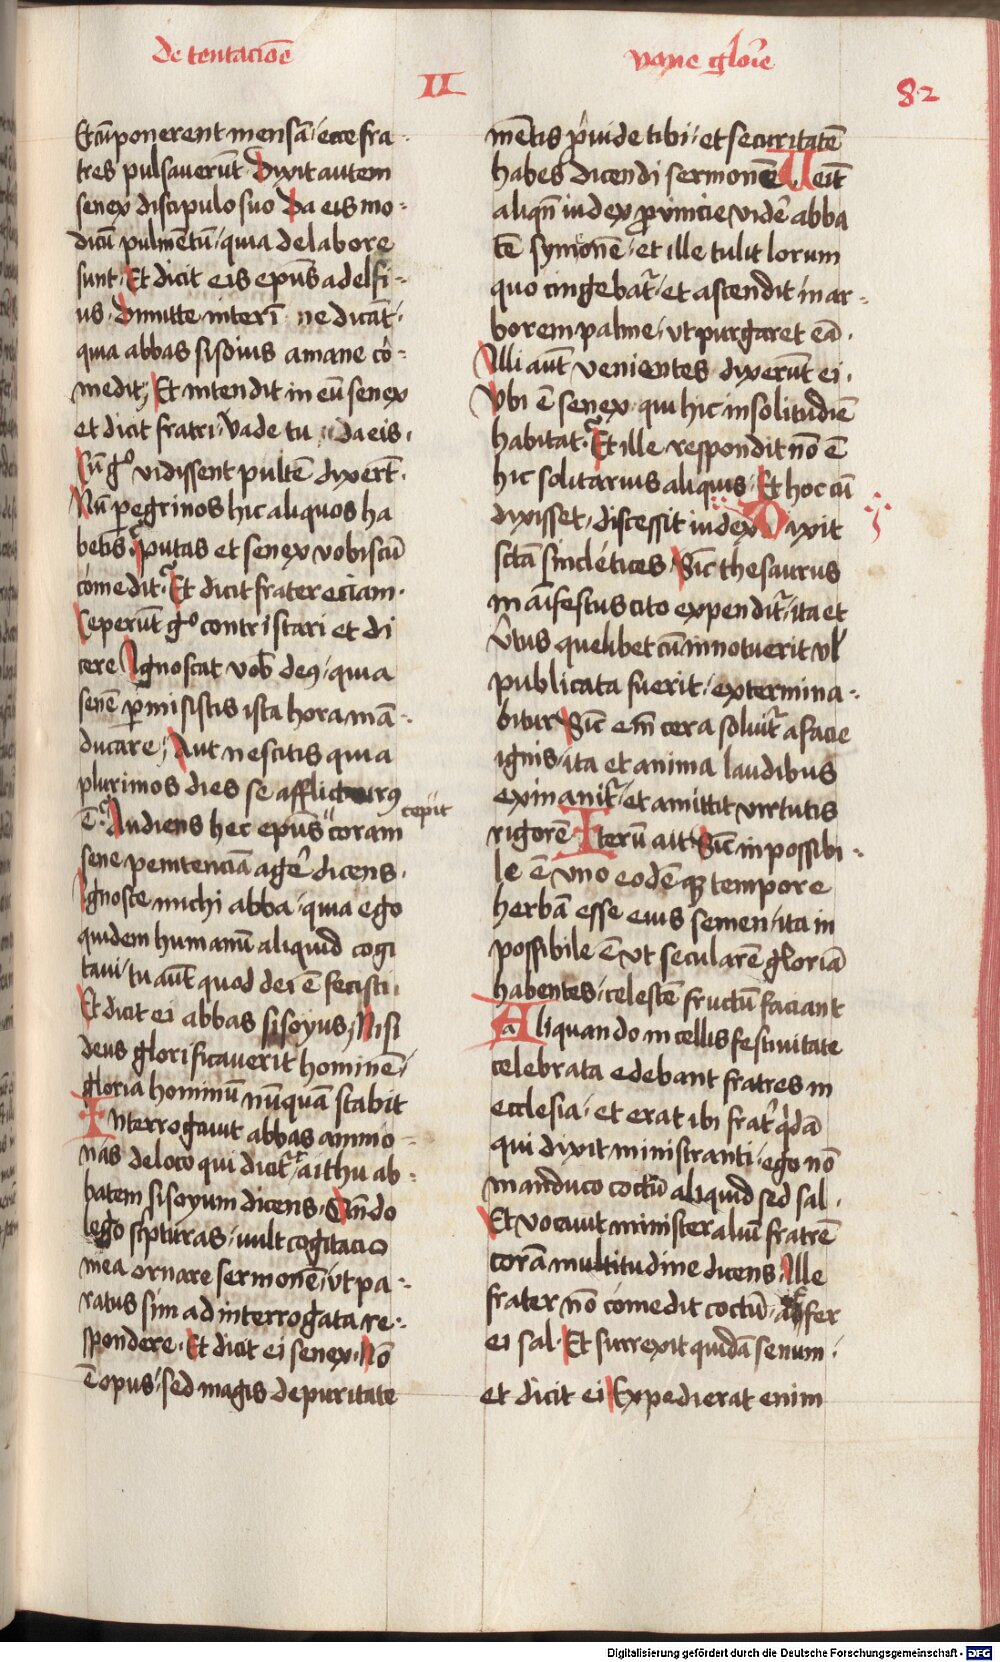 De tentacioẽ
vane glor̃ie
II
82
Et cũ ponerent mensã / ecce fra-
tres pulsaverũt · Dixit autem
senex discipulo suo Da eis mo-
dicũ pulmẽtũ / quia de labore
sunt · Et dicit eis ep̃us adelfi-
us · Dimitte interĩ · ne dicãt /
quia abbas sisoius a mane cõ-
medit / Et intendit in eũ senex
et dicit fratri / Vade tu da eis ·
Cũ gᵒ vidissent pultẽ dixerũt ·
Nũ peregrinos hic aliquos ha
betis · putas et senex vobiscũ
comedit · Et dicit frater eciam ·
Ceperũt gᵒ contristari et di
cere Ignoscat vob̃ deus / quia
senẽ p̲misistis ista hora mã-
ducare / Aut nescitis quia
plurimos dies se afflicturꝰ
ẽ · Audiens hec ep̃us " coram
cepit
sene penitenciã agẽ dicens ·
Ignosce michi abba / quia ego
quidem humanũ aliquid cogi
tavi / tu aũt quod dei ẽ fecisti ·
Et dicit ei abbas sisoyus / Nisi
deus glorificaverit hominẽ /
gloria hominũ nũquã stabit
Interrogavit abbas ammo-
nas de loco qui dicit᷑ raithu ab-
batem sisoyum dicens · Qñdo
lego sc̃pturas / vult cogitacio
mea ornare sermonẽ / ut pa-
ratus sim ad interrogata re-
spondere · Et dicit ei senex · Nõ
ẽ opus / sed magis de puritate
mẽtis p̃vide tibi / et securitatẽ
habes dicendi sermonẽ Ueñit
aliqñ iudex ꝓvincie vidẽ abba
tẽ symonẽ / et ille tulit lorum
quo cingebat᷑ / et ascendit in ar-
borem palme / ut purgaret eã ·
Illi aũt venientes dixerũt ei ·
Vbi ẽ senex qui hic in solitudĩe
habitat · Et ille respondit nõ ẽ
hic solitarius aliquis · Et hoc cũ
dixisset / discessit iudex Dixit
sc̃ta sincletices · Sic̃ thesaurus
mãifestus cito expendit᷑ / ita et
v̾tus quelibet cũ innotuerit vl̾
publicata fuerit / extermina-
bitur Sic̃ em̃ cera soluit᷑ a facie
ignis / ita et anima laudibus
exinanit᷑ / et amittit virtutis
rigorẽ Iterũ ait Sic̃ inpossibi-
le ẽ uno eodẽqꝫ tempore
herbã esse eius semen / ita in
possibile ẽ ut secularẽ gloriã
habentes / celestẽ fructũ faciant
Aliquando in cellis festivitate
celebrata edebant fratres in
ecclesia / et erat ibi frat̾ q̃dã
qui dixit ministranti / ego nõ
manduco coctũ aliquid sed sal ·
Et vocavit minister aliũ fratrẽ
corã multitudine dicens · Ille
frater nõ comedit coctũ · affer
ei sal · Et surrexit quidã senum ·
et dicit ei Expedierat enim
Digitalisierung gefördert durch die Deutsche Forschungsgemeinschaft - DFG